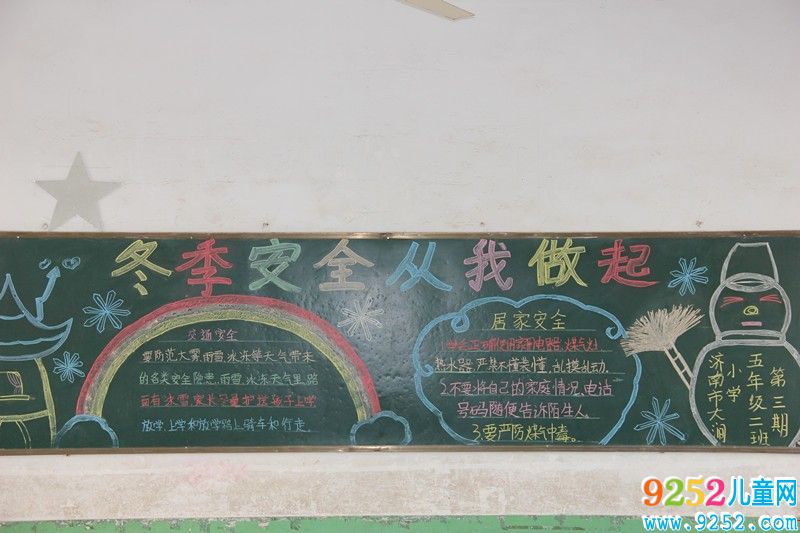 冬季安全从我做起
交通安全
要防范大雾,雨雪,冰冻等天气带来
的各类安全隐患,雨雪,冰冻天气里,路
面有冰雪家长尽量护送孩子上学
放学,上学和放学路上骑车和行走。
居家安全
正确使用家用电器,煤气灶
热水器,严禁不懂装懂,乱摸乱动。
2.不要将自己的家庭情况,电话
号码随便告诉陌生人。
3.要严防煤气中毒。
第三期
五年级二班
小学
济南市大涧
9252儿童网
www.9252.com